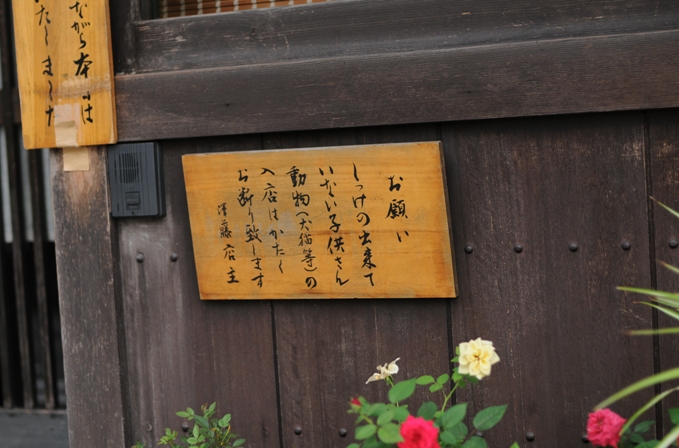 お願い
しつけの出来て
いない子供さん
動物(犬猫等)の
入店はかたく
お断り致します
店主
ながら本
は
たしました